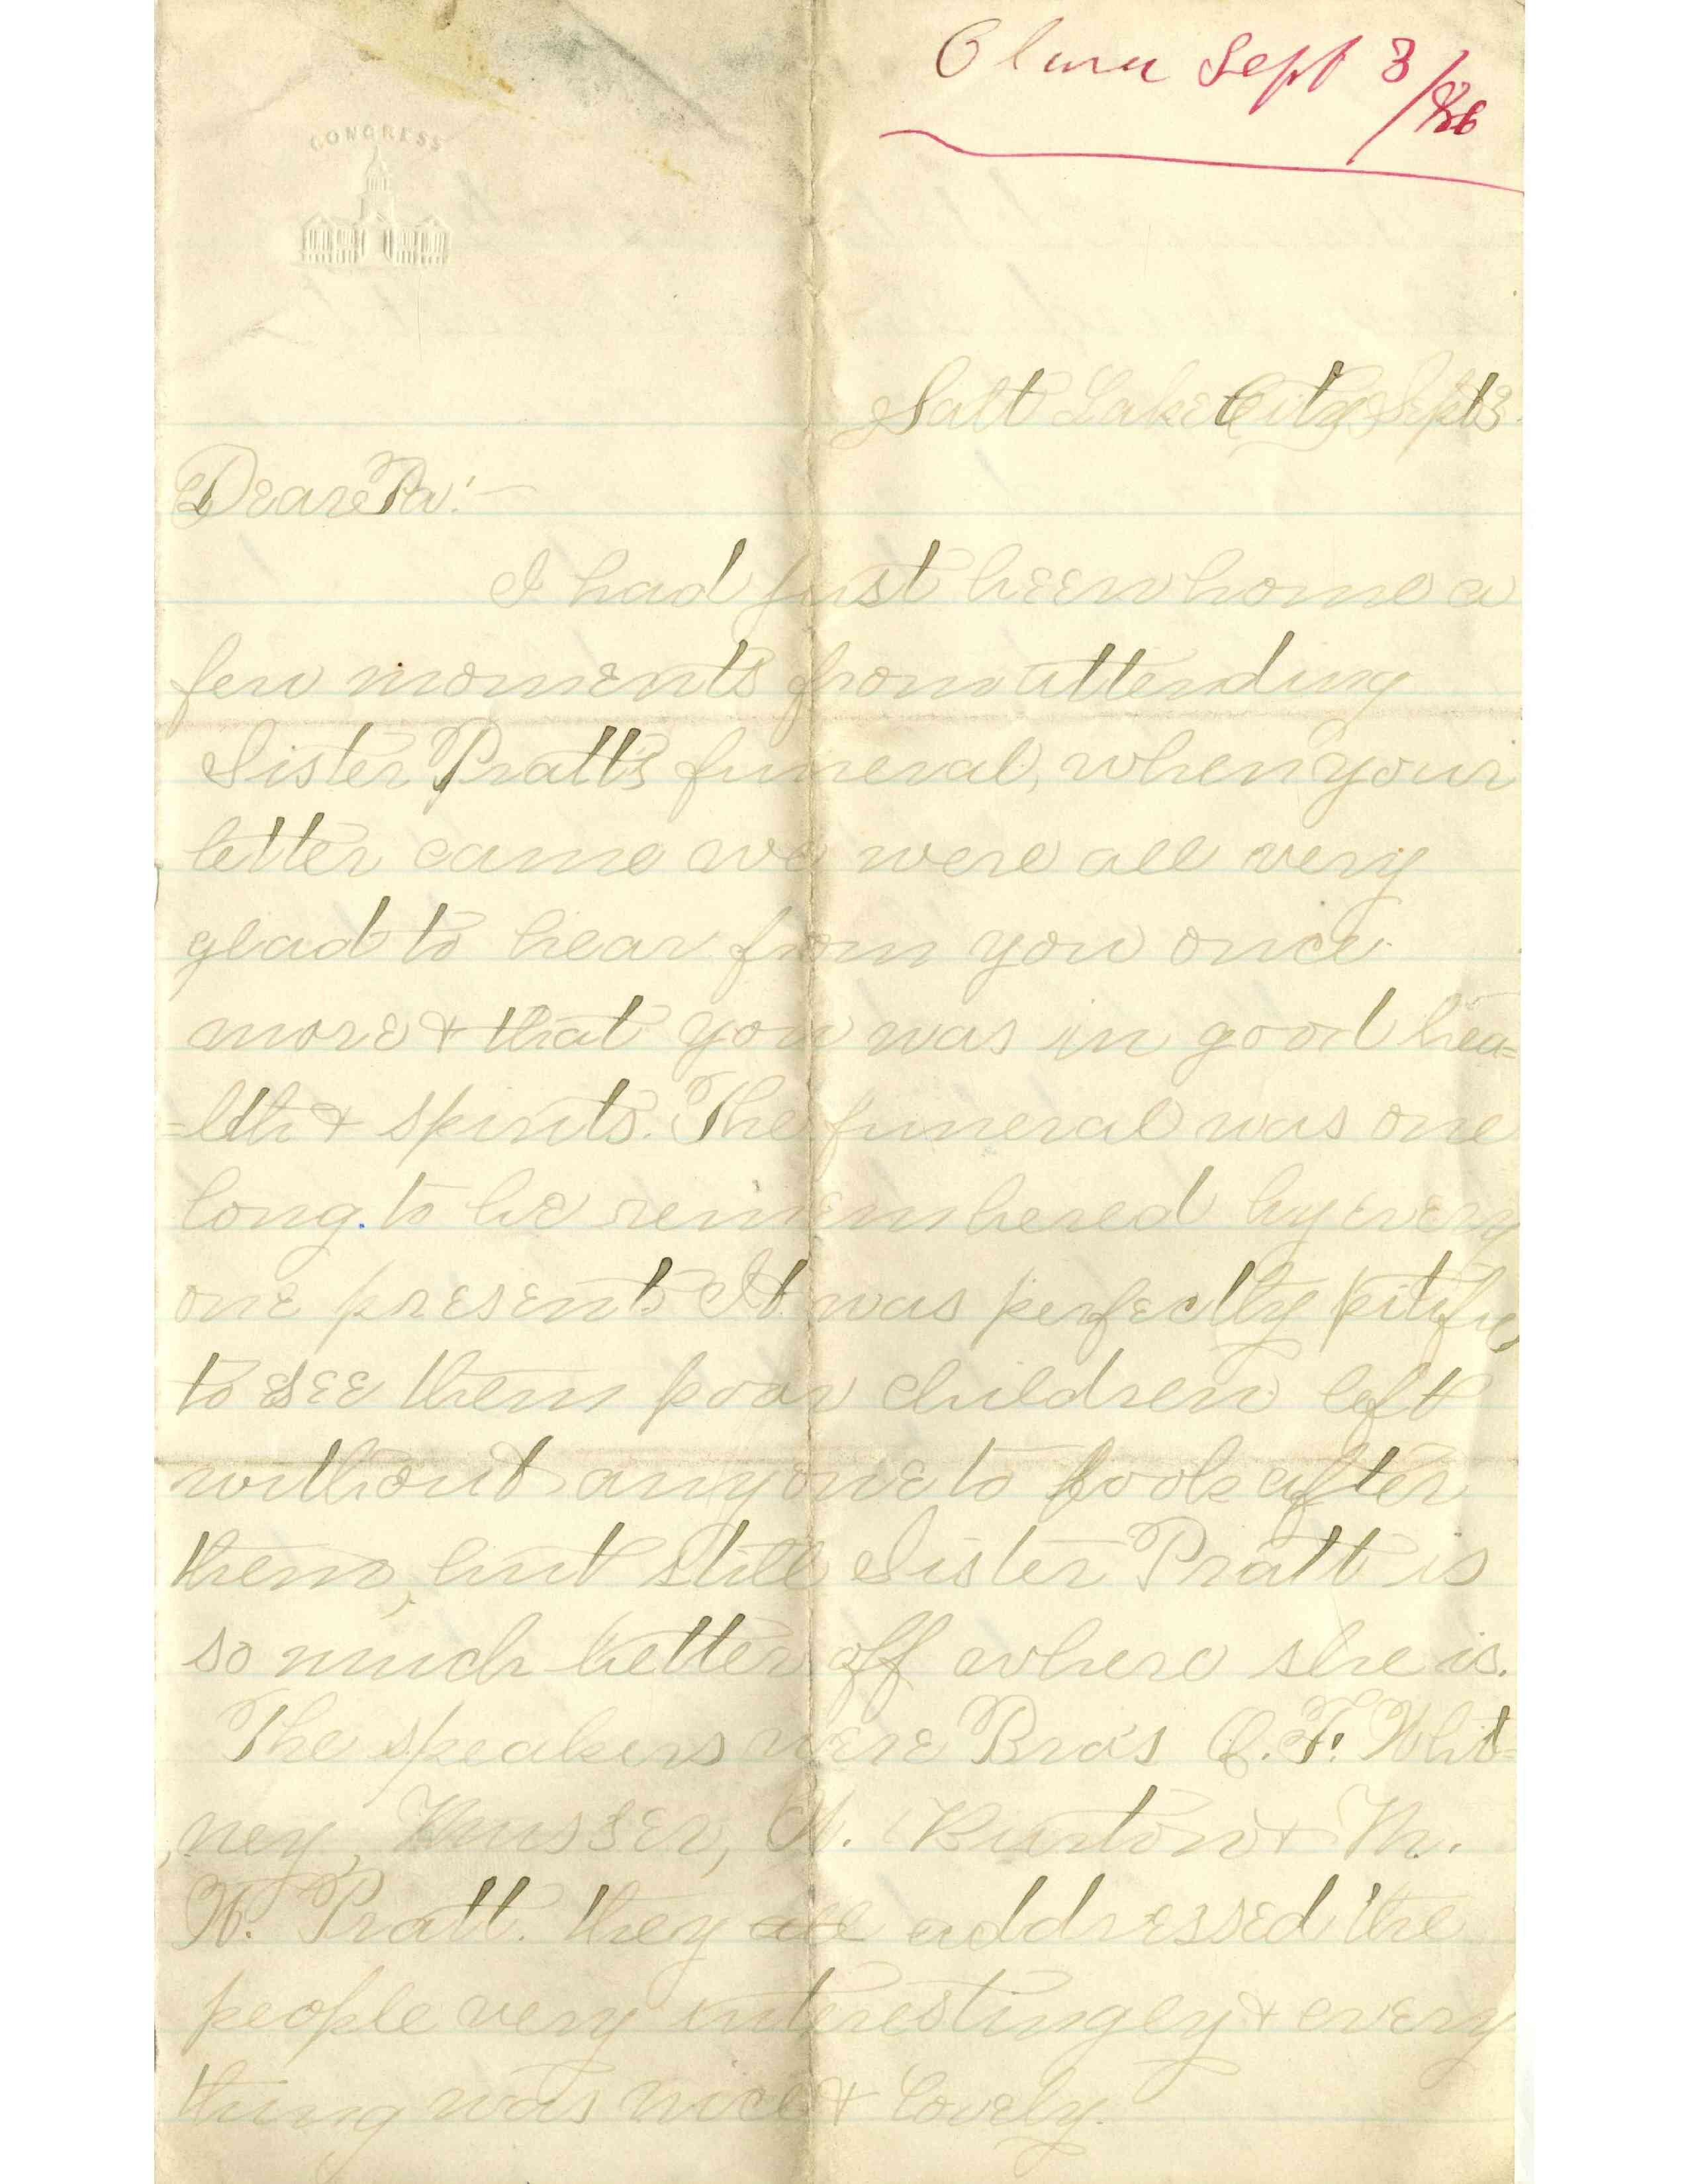 Sept 3/86
CONGRESS
Salt Lake City Sept 3
Dear Pa:—
I had just been home a
few moments from attending
Sister Pratt's funeral, when your
letter came we were all very
glad to hear from you once
more & that you was in good hea=
=lth & spirits. The funeral was one
long to be remembered by every
one present It was perfectly pitiful
to see them poor children left
without anyone to look after
them, but still Sister Pratt is
so much better off where she is.
The speakers were Bro's O. F. Whit=
ney, Musser, W. Burton & M.
W. Pratt. they all addressed the
people very interestingly & every
thing was nice & lovely.